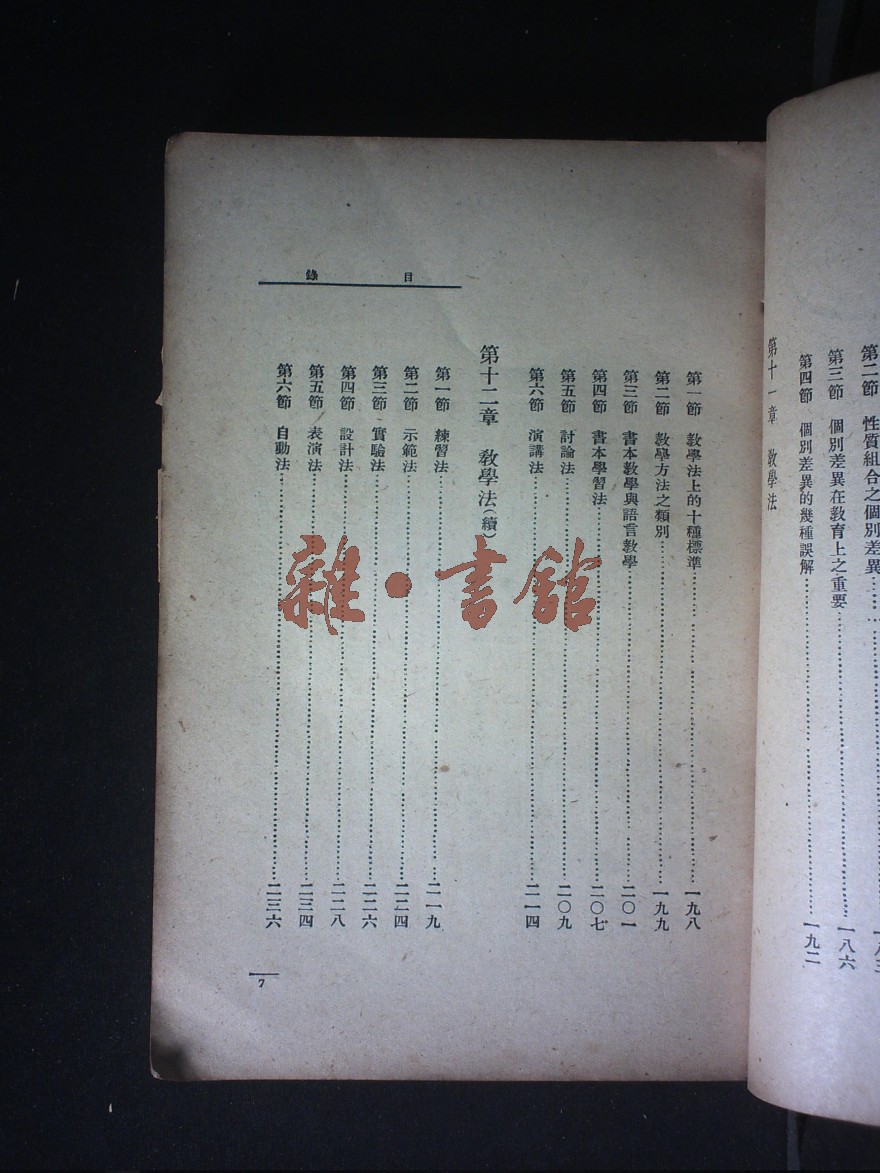 第二節　性質組合之個別差異……
第三節　個別差異在教育上之重要……一八六
第四節　個別差異的幾種誤解……一九二
第十一章　教學法
目錄
第一節　教學法上的十種標準……一九八
第二節　教學方法之類別……一九九
第三節　書本教學與語言教學……二〇一
第四節　書本學習法……二〇七
第五節　討論法……二〇九
第六節　演講法……二一四
第十二章　教學法(續)
第一節　練習法……二一九
第二節　示範法……二二四
第三節　實驗法……二二六
第四節　設計法……二二八
第五節　表演法……二三四
第六節　自動法……二三六
7
雜·書館